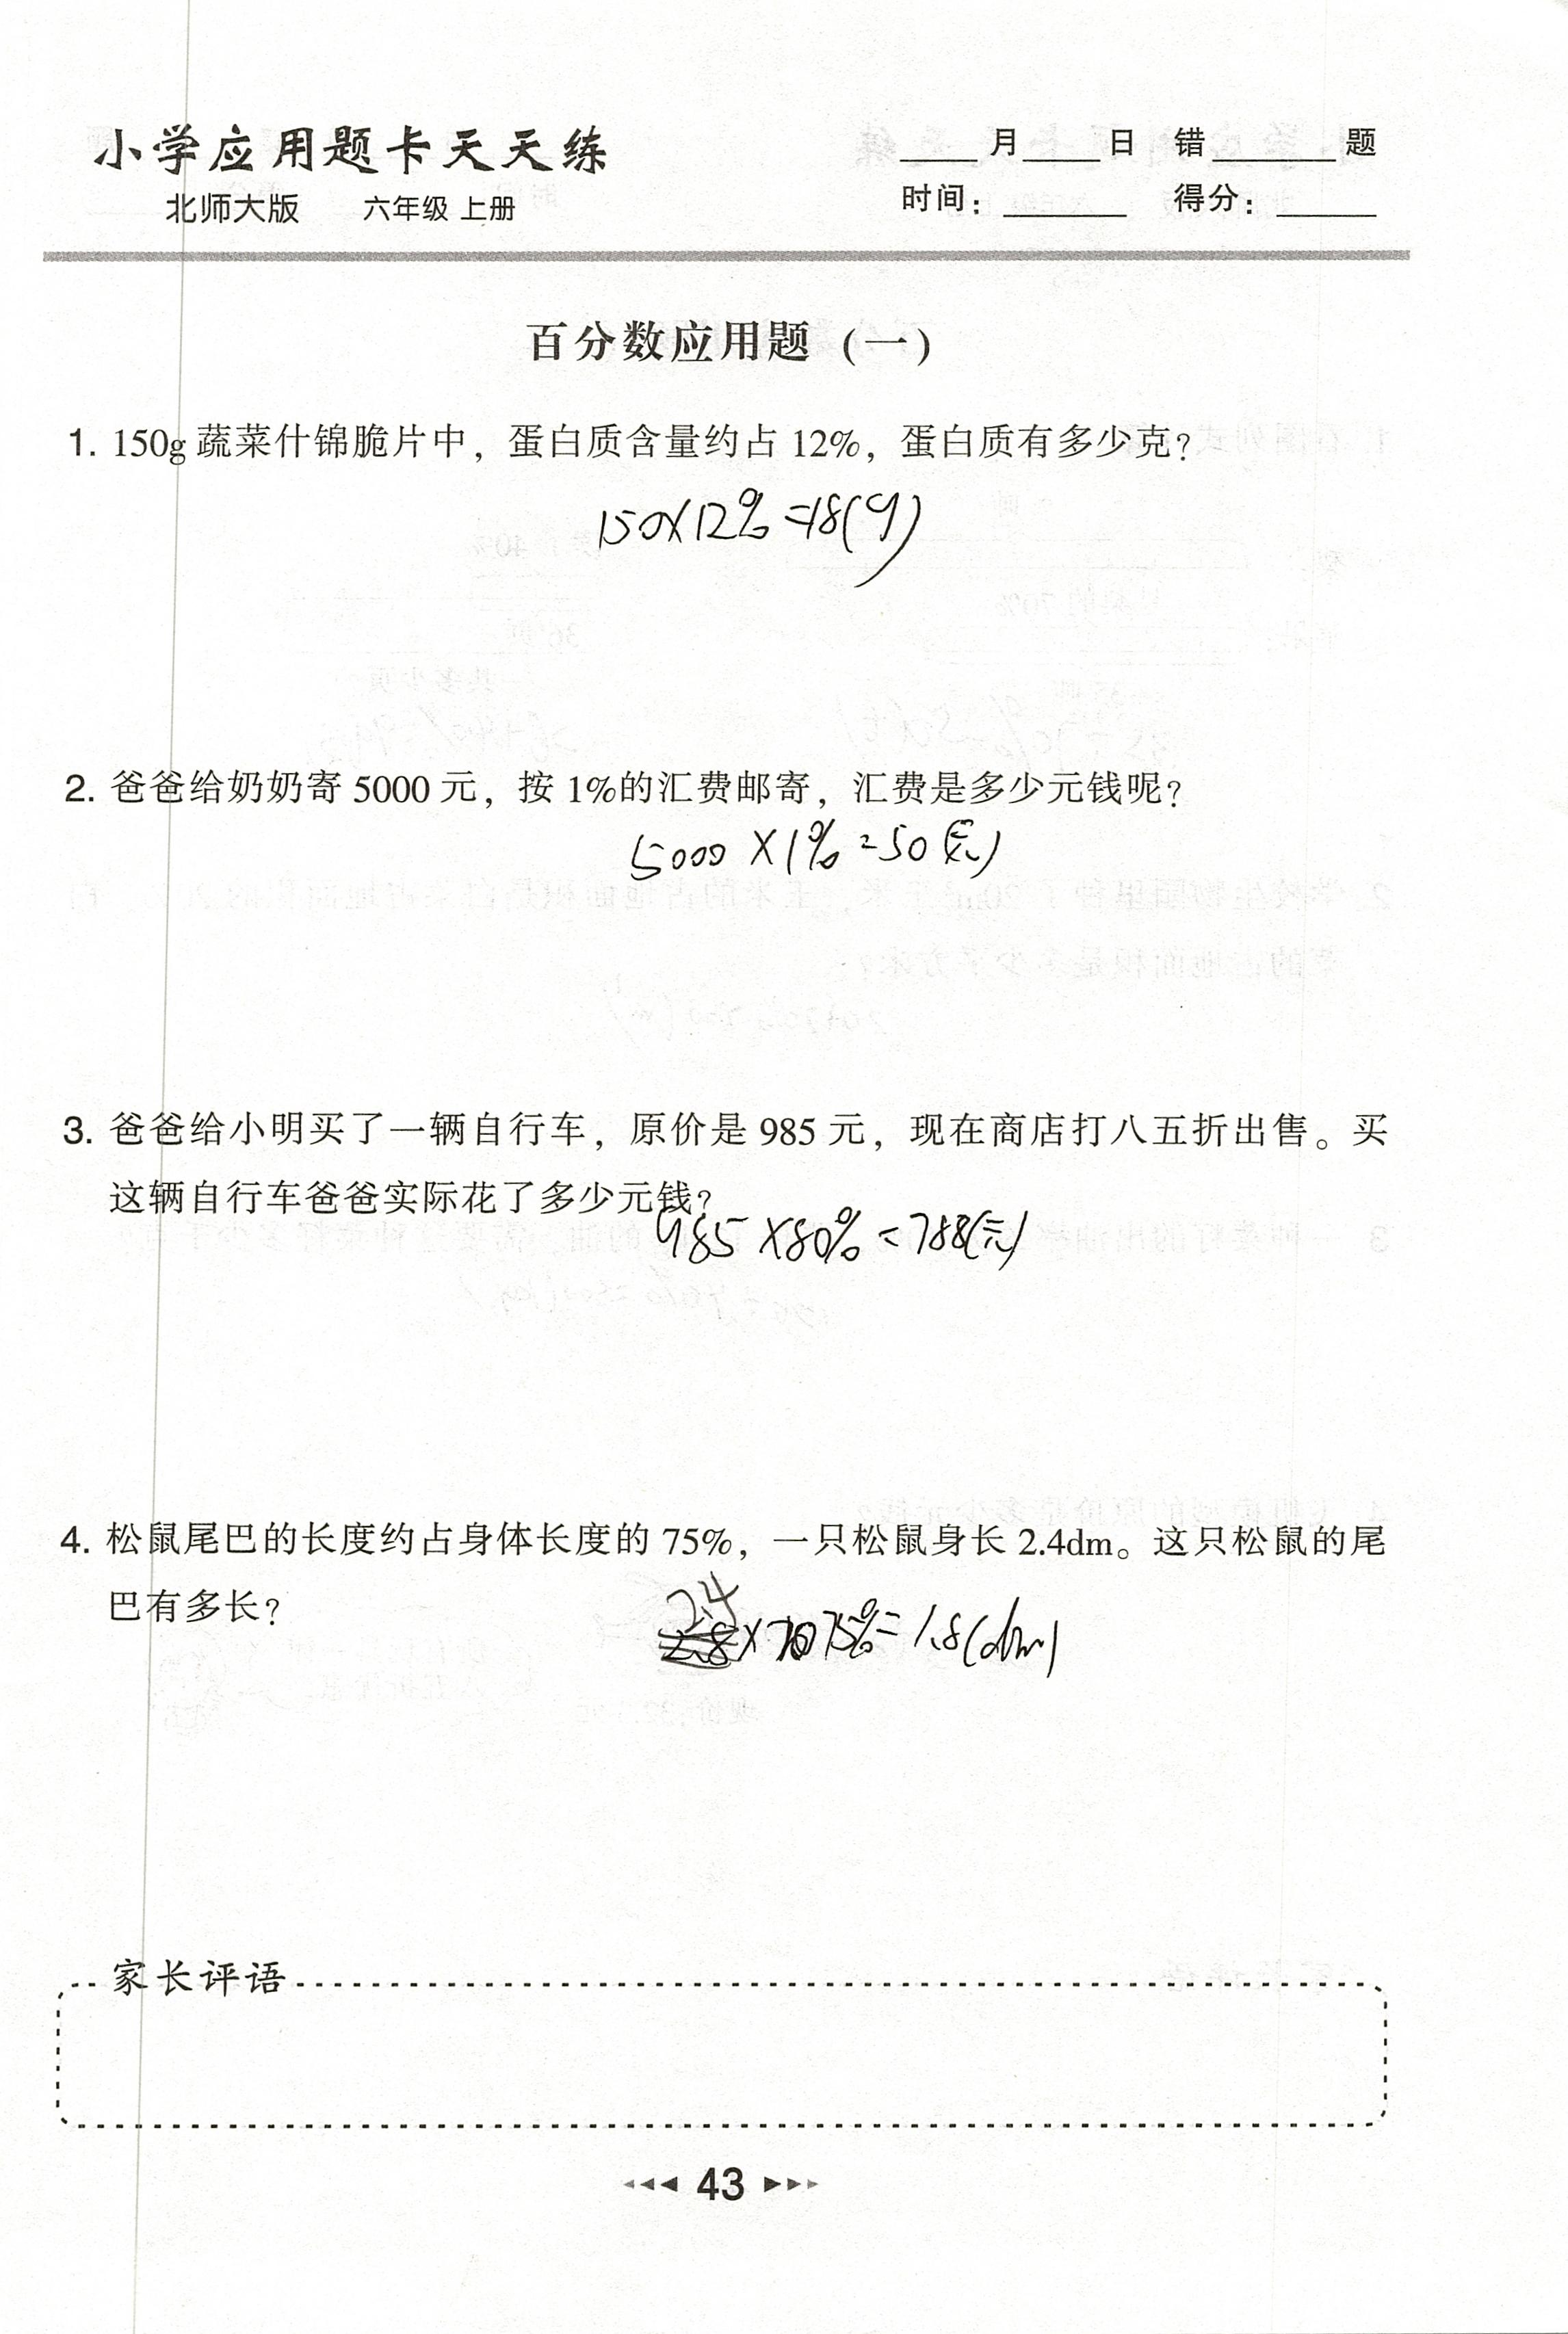 小学应用题卡天天练
北师大版 六年级 上册
____月____日 错______题
时间：______ 得分：_____
百分数应用题 (一)
1. 150g 蔬菜什锦脆片中，蛋白质含量约占 12%，蛋白质有多少克？
150×12%=18(g)
2. 爸爸给奶奶寄 5000 元，按 1%的汇费邮寄，汇费是多少元钱呢？
5000×1%=50(元)
3. 爸爸给小明买了一辆自行车，原价是 985 元，现在商店打八五折出售。买
这辆自行车爸爸实际花了多少元钱？
985×80%=788(元)
4. 松鼠尾巴的长度约占身体长度的 75%，一只松鼠身长 2.4dm。这只松鼠的尾
巴有多长？
2.4×75%=1.8(dm)
家长评语
43